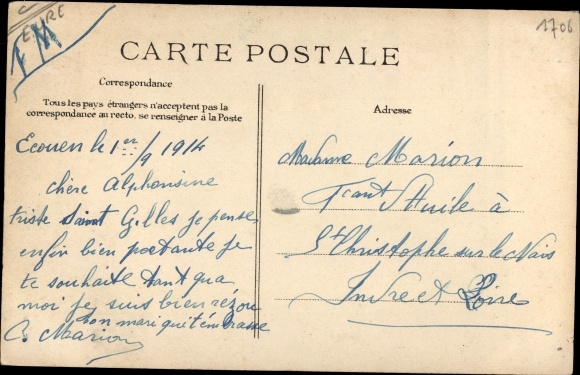 EURE
FM
1706
CARTE POSTALE
Correspondance
Tous les pays étrangers n'acceptent pas la
correspondance au recto, se renseigner à la Poste
Adresse
Ecouen le 1er/9 1914
chère Alphonsine
triste Saint Gilles je pense
enfin bien portante je
te souhaite tant qua
moi je suis bien rézou
ton mari qui t'embrasse
C. Marion
Madame Marion
Fcant d'Huile à
St Christophe sur le Nais
Indre et Loire